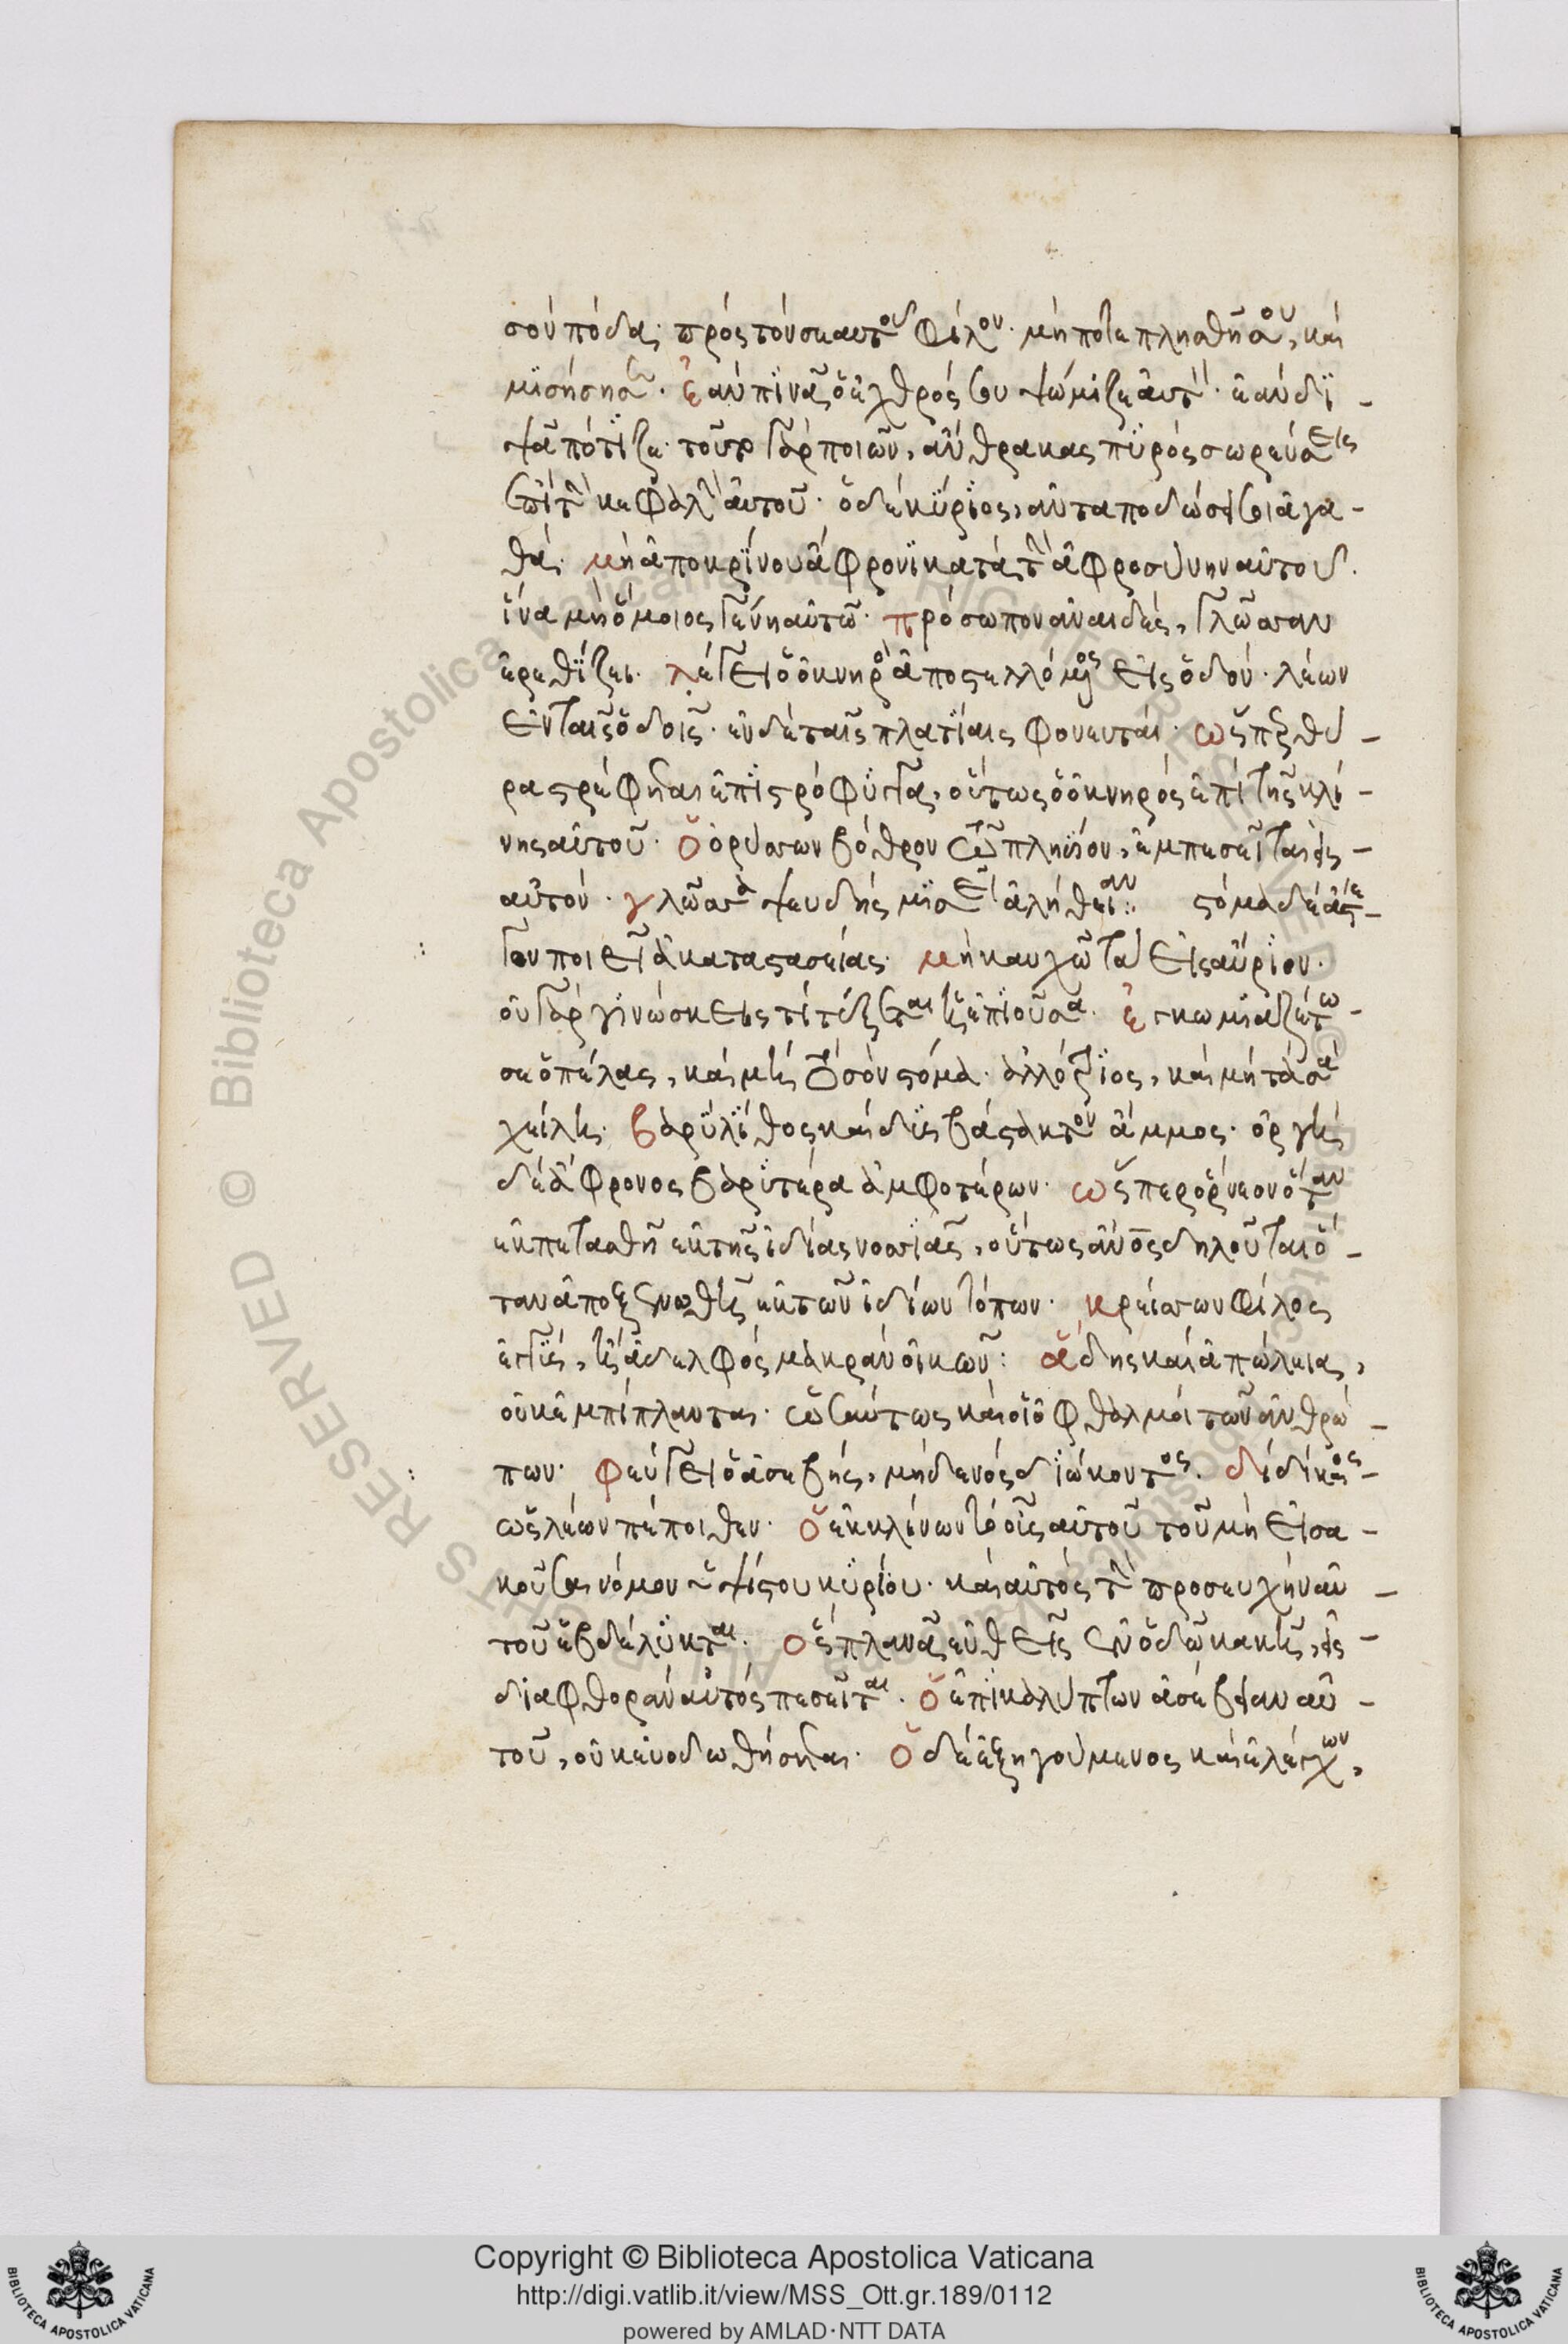 σὸν πόδα· πρὸς τὸν σεαυτοῦ φίλον· μήποτε πλησθῆ σου, καὶ
μισήση σε. ἐὰν πινᾶ ὁ ἐχθρός σου ψώμιζε αὐτόν· ἐὰν δι-
ψᾶ πότιζε· τοῦτο γὰρ ποιῶν, ἄνθρακας πυρὸς σωρεύσεις
ἐπὶ τὴν κεφαλὴν αὐτοῦ· ὁ δὲ κύριος, ἀνταποδώσει σοι ἀγα-
θά. μὴ ἀποκρίνου ἄφρονι κατὰ τὴν ἀφροσύνην αὐτοῦ.
ἵνα μὴ ὅμοιος γένη αὐτῶ· πρόσωπον ἀναιδὲς, γλῶσσαν
ἐρεθίζει. λέγει ὁ ὀκνηρὸς ἀποστελλόμενος εἰς ὁδόν· λέων
ἐν ταῖς ὁδοῖς. ἐν δὲ ταῖς πλατίαις φονευταί· ὥσπερ θύ-
ρα στρέφεται ἐπὶ στρόφιγγα, οὕτως ὁ ὀκνηρὸς ἐπὶ τῆς κλί-
νης αὐτοῦ· ὁ ὀρύσσων βόθρον τῶ πλησίον, ἐμπεσεῖται εἰς
αὐτόν· γλῶσσα ψευδὴς μισεῖ ἀλήθειαν: στόμα δὲ ἄστε-
γον ποιεῖ ἀκαταστασίας· μὴ καυχῶ τὰ εἰς αὔριον·
οὐ γὰρ γινώσκεις τί τέξεται ἡ ἐπιοῦσα. ἐγκωμιαζέτω
σε ὁ πέλας, καὶ μὴ τὸ σὸν στόμα· ἀλλότριος, καὶ μὴ τὰ σὰ
χείλη· βαρὺ λίθος καὶ δυσβάστακτον ἄμμος· ὀργὴ
δὲ ἄφρονος βαρυτέρα ἀμφοτέρων· ὥσπερ ὄρνεον ὅταν
ἐκπετασθῆ ἐκ τῆς ἰδίας νοσσιᾶς, οὕτως ἄνος δηλοῦται ὅ-
ταν ἀποξενωθῆ ἐκ τῶν ἰδίων τόπων· κρείσσων φίλος
ἐγγὺς, ἢ ἀδελφὸς μακρὰν οἰκῶν: ἅδης καὶ ἀπώλεια,
οὐκ ἐμπίπλανται· ὡσαύτως καὶ οἱ ὀφθαλμοὶ τῶν ἀνθρώ-
πων· φεύγει ὁ ἀσεβὴς, μηδενὸς διώκοντος. δίδίκαιος
ὡς λέων πέποιθεν· ὁ ἐκκλίνων τὸ οὖς αὐτοῦ τοῦ μὴ εἰσα-
κοῦσαι νόμον ὑψίστου κυρίου· καὶ αὐτὸς τὴν προσευχὴν αὐ-
τοῦ ἐβδέλυκται. ὃς πλανᾶ εὐθεῖς ἐν ὁδῶ κακῆ, εἰς
διαφθορὰν αὐτὸς πεσεῖται. ὁ ἐπικαλύπτων ἀσέβειαν αὐ-
τοῦ, οὐκ εὐοδωθήσεται· ὁ δὲ ἐξηγούμενος καὶ ἐλέγχων,
Copyright © Biblioteca Apostolica Vaticana
http://digi.vatlib.it/view/MSS_Ott.gr.189/0112
powered by AMLAD·NTT DATA